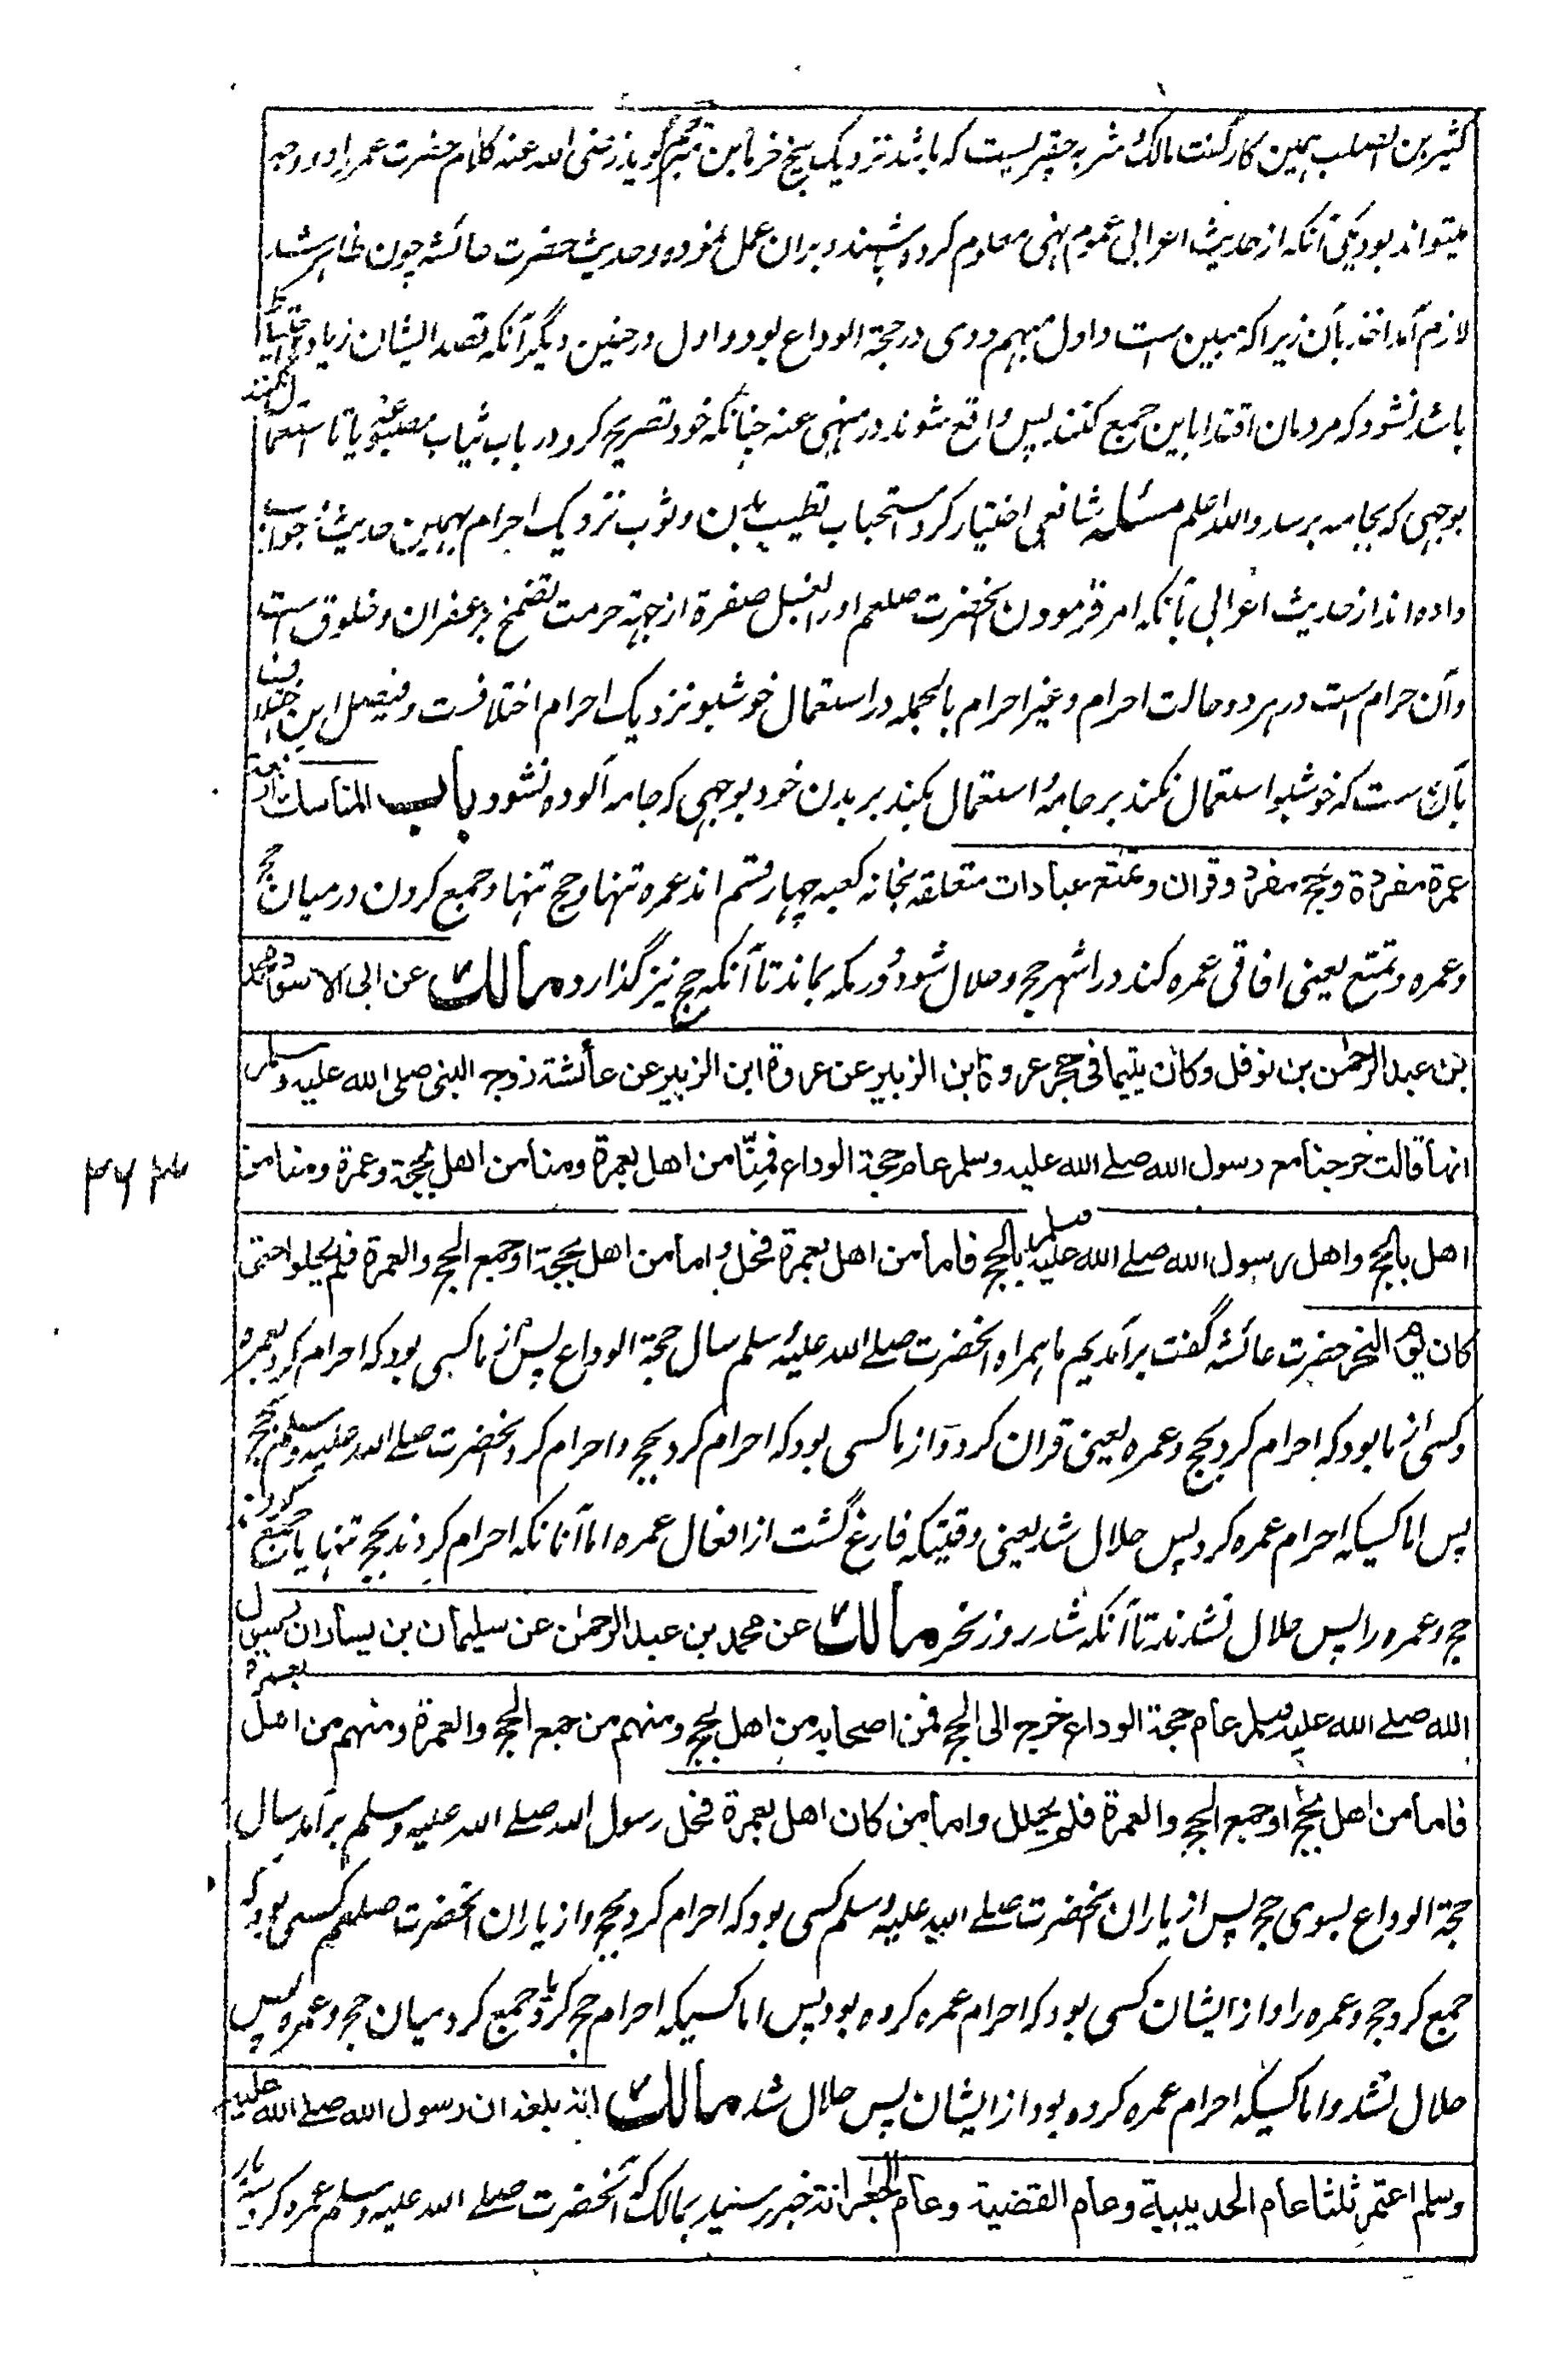 کثیر بن الصلب ہمین کار گفت مالک شربہ حفیرلیست کہ باشد نزدیک بیخ خرما بن مترجم گوید رضی اللہ عنہ کلام حضرت عمر را دو وجہ
میتواند بود یکی آنکہ از حدیث اعرابی عموم نہی معلوم کردہ باشند و بران عمل نمودہ و حدیث حضرت عائشہ چون ظاہر شد
لازم آمد اخذ بآن زیراکہ مبین ست و اول مبہم و وی در حجۃ الوداع بود و اول در حنین دیگر آنکہ قصد ایشان زیادہ احتیاط
باشد نشود کہ مردمان اقتدا باین جمع کنند پس واقع شوند در منہی عنہ چنانکہ خود تصریح کرد در باب ثیاب مصبوغہ یا تا استعمال نکنند
بوجہی کہ بجامہ برسد واللہ اعلم مسئلہ شافعی اختیار کرد استحباب تطییب بدن و ثوب نزدیک احرام بہمین حدیث و جواب
دادہ اند از حدیث اعرابی بآنکہ امر فرمودن آنحضرت صلعم او را بغسل صفرۃ از جہت حرمت تضمخ بزعفران و خلوق ست
و آن حرام ست در ہر دو حالت احرام و غیر احرام بالجملہ در استعمال خوشبو نزدیک احرام اختلافست و فیصل این اختلاف
بآن ست کہ خوشبو استعمال نکند بر جامہ و استعمال بکند بر بدن خود بوجہی کہ جامہ آلودہ نشود باب المناسک اربعۃ
عمرۃ مفردۃ و حج مفرد و قران و تمتع عبادات متعلقہ بخانہ کعبہ چہار قسم اند عمرہ تنہا و حج تنہا و جمع کردن درمیان حج
و عمرہ و تمتع یعنی افاقی عمرہ کند در اشہر حج و حلال شود و در مکہ بماند تا آنکہ حج نیز گذارد مالک عن ابی الاسود محمد
بن عبد الرحمٰن بن نوفل وکان یتیما فی حجر عروۃ بن الزبیر عن عروۃ ابن الزبیر عن عائشۃ زوجہ النبی صلی اللہ علیہ وسلم
انہا قالت خرجنا مع رسول اللہ صلے اللہ علیہ وسلم عام حجۃ الوداع فمنّا من اھل بعمرۃ ومنا من اھل بحجۃ وعمرۃ ومنا من
۳۶۴
اھل بالحج واھل رسول اللہ صلے اللہ علیہ وسلم بالحج فاما من اھل بعمرۃ فحل واما من اھل بحجۃ او جمع الحج والعمرۃ فلم یحلوا حتی
کان یوم النحر حضرت عائشہ گفت برآمدیم ما ہمراہ آنحضرت صلے اللہ علیہ وسلم سال حجۃ الوداع پس از ما کسی بود کہ احرام کرد بعمرہ
و کسی از ما بود کہ احرام کرد بحج و عمرہ یعنی قران کرد و از ما کسی بود کہ احرام کرد بحج و احرام کرد آنحضرت صلے اللہ علیہ وسلم بحج
پس اما کسیکہ احرام عمرہ کرد پس حلال شد یعنی وقتیکہ فارغ گشت از افعال عمرہ اما آنانکہ احرام کردند بحج تنہا یا جمع کردند
حج و عمرہ را پس حلال نشدند تا آنکہ شد روز نحر مالک عن محمد بن عبد الرحمٰن عن سلیمان بن یسار ان رسول
اللہ صلے اللہ علیہ وسلم عام حجۃ الوداع خرج الی الحج فمن اصحابہ من اھل بحج ومنھم من جمع الحج والعمرۃ ومنھم من اھل بعمرۃ
فاما من اھل بحج او جمع الحج والعمرۃ فلم یحلل واما من کان اھل بعمرۃ فحل رسول اللہ صلے اللہ علیہ وسلم برآمد سال
حجۃ الوداع بسوی حج پس از یاران آنحضرت صلے اللہ علیہ وسلم کسی بود کہ احرام کرد بحج و از یاران آنحضرت صلعم کسی بود کہ
جمع کرد حج و عمرہ را و از ایشان کسی بود کہ احرام عمرہ کردہ بود پس اما کسیکہ احرام حج کرد یا جمع کرد میان حج و عمرہ پس
حلال نشد و اما کسیکہ احرام عمرہ کردہ بود از ایشان پس حلال شد مالک انہ بلغہ ان رسول اللہ صلے اللہ علیہ
وسلم اعتمر ثلثا عام الحدیبیۃ وعام القضیۃ وعام الجعرانۃ خبر رسید بمالک کہ آنحضرت صلے اللہ علیہ وسلم عمرہ کرد سہ بار